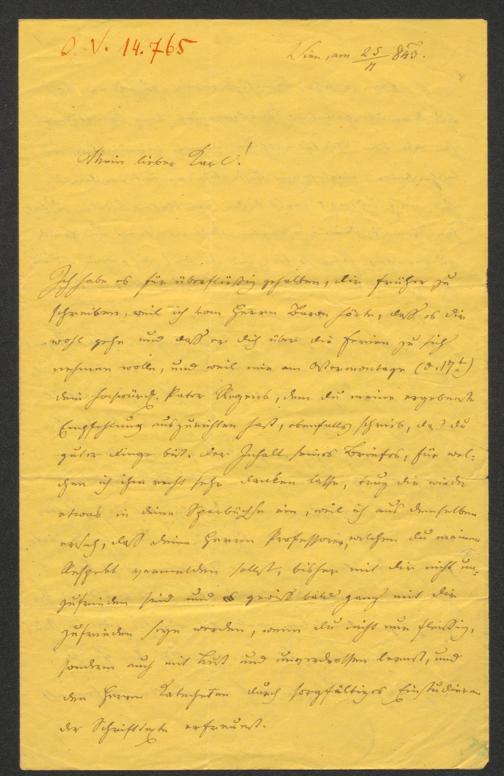 O. V. 14.765
Wien, am 25/4 843.
Mein lieber Karl!
Ich habe es für überflüßig gehalten, dir früher zu
schreiben, weil ich vom Herrn Baron hörte, daß es dir
wohl gehe und daß er dich über die Ferien zu sich
nehmen wolle, und weil mir am Ostermontage (d. 17t)
dein hochwürd. Pater Regens, dem du meine ergebenste
Empfehlung auszurichten hast, ebenfalls schrieb, daß du
guter Dinge bist. Der Inhalt seines Briefes, für wel-
chen ich ihm recht sehr danken lasse, trug dir wieder
etwas in deine Sparbüchse ein, weil ich aus demselben
ersah, daß deine Herren Professoren, welchen du meinen
Respekt vermelden sollst, bisher mit dir nicht un-
zufrieden sind und gewiß bald ganz mit dir
zufrieden seyn werden, wenn du nicht nur fleißig,
sondern auch mit Lust und unverdrossen lernst, und
den Herrn Katecheten durch sorgfältiges Einstudieren
der Schrifttexte erfreuest.